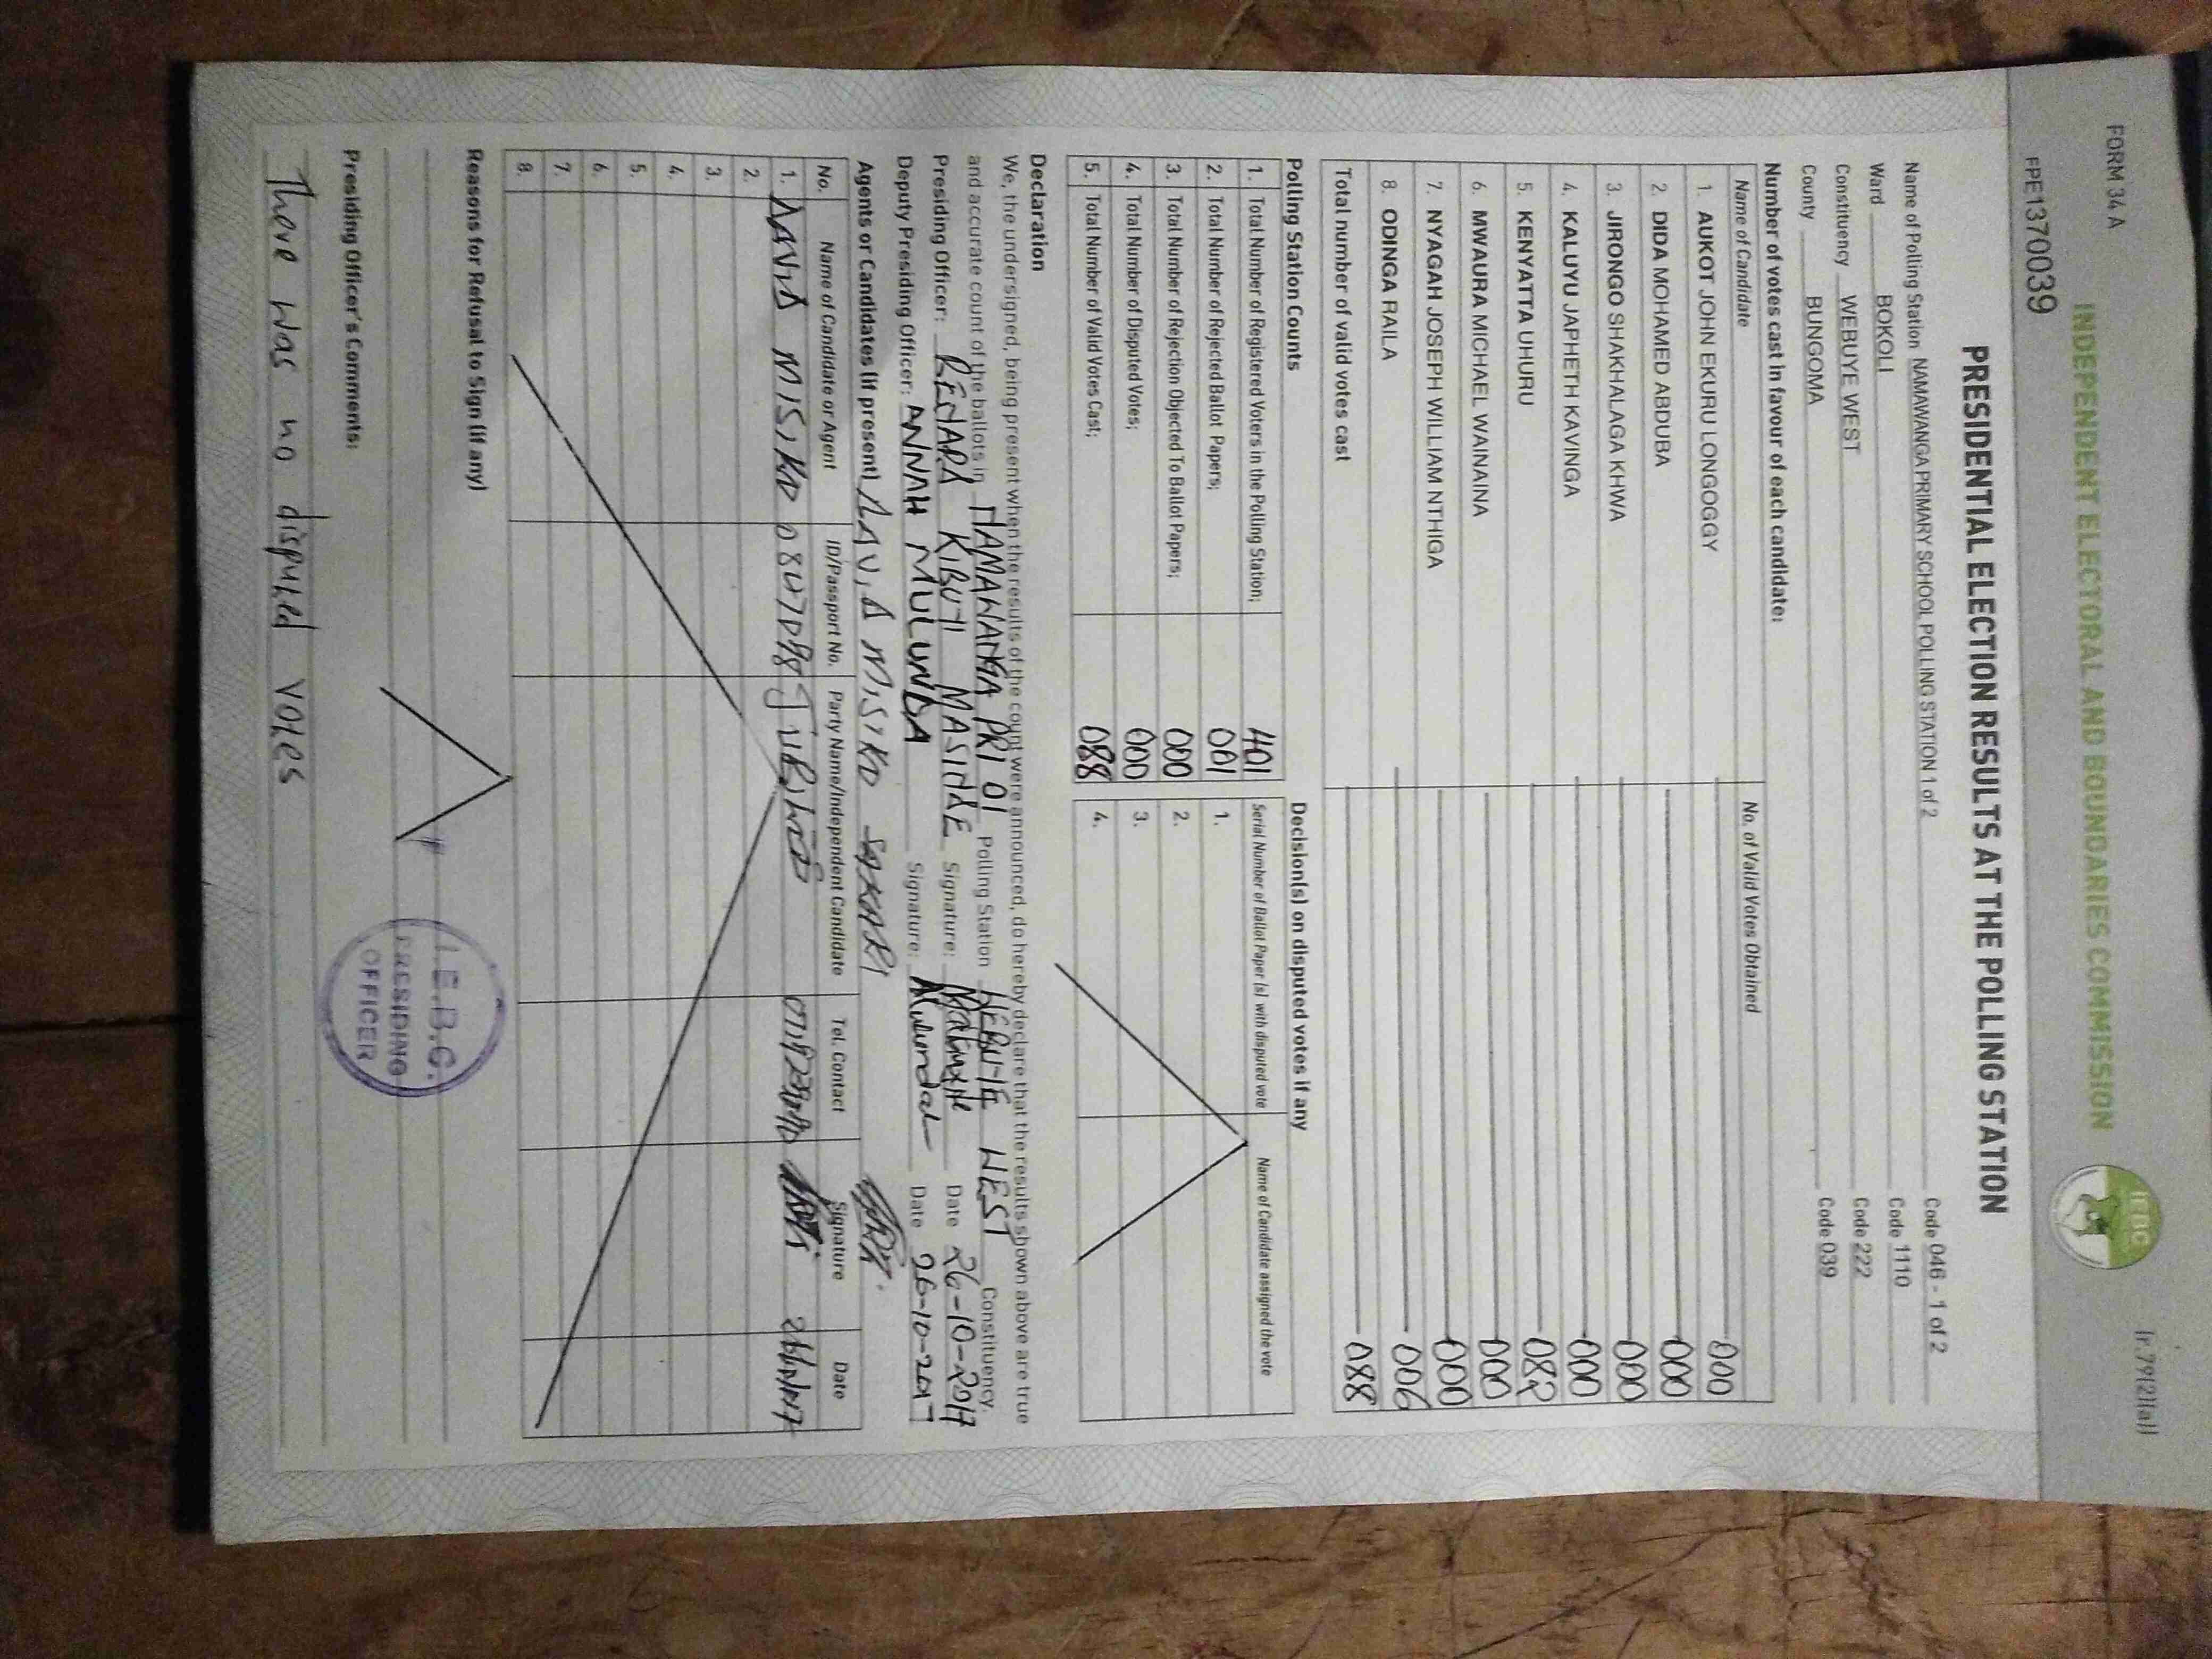 FORM 34 A
(r.79(2)(a))
INDEPENDENT ELECTORAL AND BOUNDARIES COMMISSION
IEBC
FPE1370039
PRESIDENTIAL ELECTION RESULTS AT THE POLLING STATION
Name of Polling Station NAMAWANGA PRIMARY SCHOOL POLLING STATION 1 of 2 Code 046 - 1 of 2
Ward BOKOLI Code 1110
Constituency WEBUYE WEST Code 222
County BUNGOMA Code 039
Number of votes cast in favour of each candidate:
Name of Candidate No. of Valid Votes Obtained
1. AUKOT JOHN EKURU LONGOGGY 000
2. DIDA MOHAMED ABDUBA 000
3. JIRONGO SHAKHALAGA KHWA 000
4. KALUYU JAPHETH KAVINGA 000
5. KENYATTA UHURU 082
6. MWAURA MICHAEL WAINAINA 000
7. NYAGAH JOSEPH WILLIAM NTHIGA 000
8. ODINGA RAILA 006
Total number of valid votes cast 088
Polling Station Counts
1. Total Number of Registered Voters in the Polling Station; 401
2. Total Number of Rejected Ballot Papers; 001
3. Total Number of Rejection Objected To Ballot Papers; 000
4. Total Number of Disputed Votes; 000
5. Total Number of Valid Votes Cast; 088
Decision(s) on disputed votes if any
Serial Number of Ballot Paper (s) with disputed vote Name of Candidate assigned the vote
1.
2.
3.
4.
Declaration
We, the undersigned, being present when the results of the count were announced, do hereby declare that the results shown above are true
and accurate count of the ballots in NAMAWANGA PRI 01 Polling Station WEBUYE WEST Constituency.
Presiding Officer: KIBUTI MASINDE Signature: Date 26-10-2017
Deputy Presiding Officer: ANNAH MULUNDA Signature: Mulunda Date 26-10-2017
Agents or Candidates (if present) DAVID MISIKO
No. Name of Candidate or Agent ID/Passport No. Party Name/Independent Candidate Tel. Contact Signature Date
1. DAVID MISIKO JUBILEE
2.
3.
4.
5.
6.
7.
8.
Reasons for Refusal to Sign (if any)
I.E.B.C.
PRESIDING
OFFICER
Presiding Officer's Comments:
There was no disputed votes